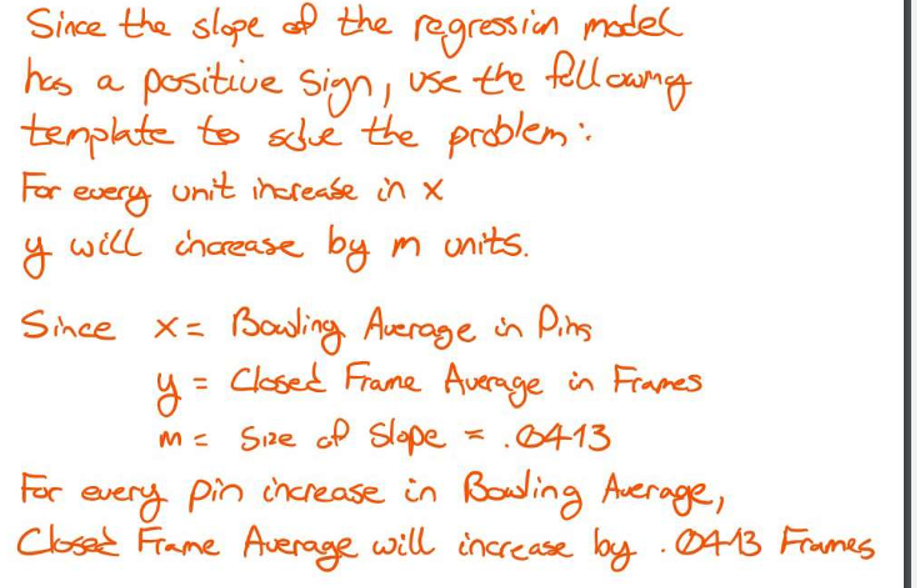 Since the slope of the regression model
has a positive sign, use the following
template to solve the problem:
For every unit increase in x
y will increase by m units.
Since x = Bowling Average in Pins
y = Closed Frame Average in Frames
m = Size of Slope = .0413
For every pin increase in Bowling Average,
Closed Frame Average will increase by .0413 Frames